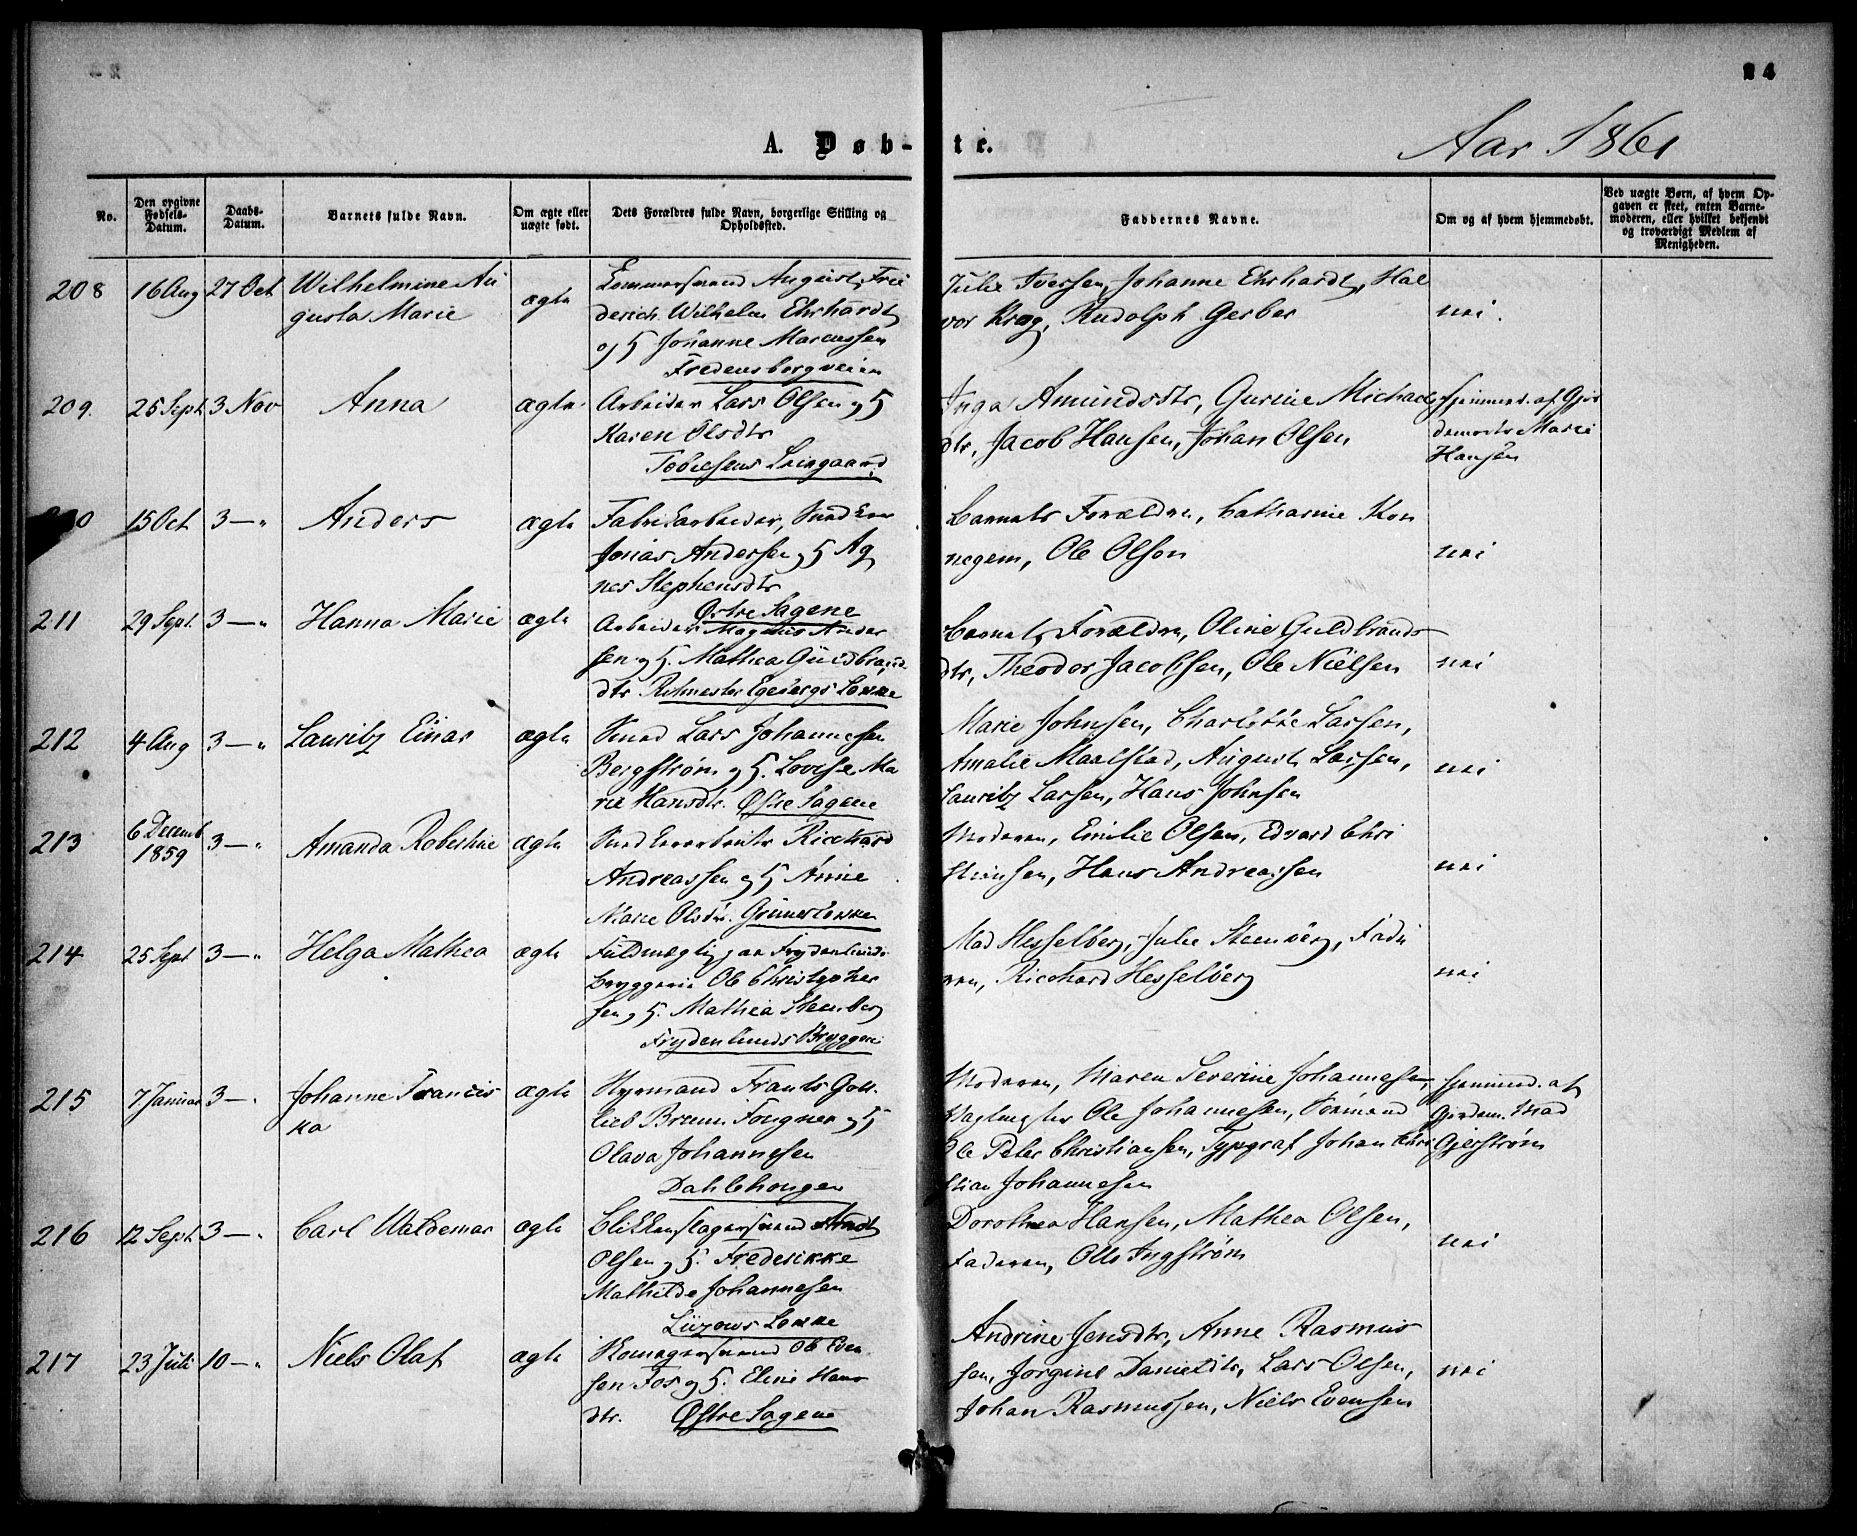 24
A. Døb-te.
Aar 1861
No.
Den opgivne Fødsels-Datum.
Daabs-Datum.
Barnets fulde Navn.
Om ægte eller uægte født.
Dets Forældres fulde Navn, borgerlige Stilling og Opholdssted.
Faddernes Navne.
Om og af hvem hjemmedøbt.
Ved uægte Børn, af hvem Opgaven er skeet, enten Barnemoderen, eller hvilket bekjendt og troværdigt Medlem af Menigheden.
208 16 Aug 27 Oct Wilhelmine Au
gusta Marie
ægte
August Frie
derich Wilhelm Ehrhardt
og H Johanne Marcussen
Fredensborgveien
Julie Iversen, Johanne Ehrhardt, Hal
vor Krog, Rudolph Gerber
nei.
209. 25 Sept 3 Nov Anna ægte
Arbeider Lars Olsen og H
Karen Olsdtr
Tobiesens Leirgaard
Inga Amundsdtr, Gurine Michaels
dtr, Jacob Hansen, Johan Olsen
hjemmed. af Gjor
demoder Marie
Hansen
15 Oct 3 — " Anders ægte
Fabrikarbeider, Snedker
Jonas Andersen og H Ag
nes Stephensdtr
Østre Sagene
Barnets Forældre, Catharine Kon
negem, Ole Olson
nei
211 29 Sept. 3 — " Hanna Marie ægte
Arbeider Magnus Ander
sen og H. Mathea Guldbrands
dtr Ritmester Egebergs Løkke
Barnets Forældre, Oline Guldbrands
dtr, Theodor Jacobsen, Ole Nielsen
nei
212 4 Aug 3 — " Lauritz Einar ægte
Smed Lars Johannesen
Bergstrøm og H. Lovise Ma
rie Hansdtr. Østre Sagene
Marie Johnsen, Charlotte Larsen,
Amalie Maalstad, August Larsen,
Lauritz Larsen, Hans Johnsen
nei
213 6 Decemb 1859 3 — " Amanda Robertine ægte
Snedkerarbeider Richard
Andreassen og H Anne
Marie Olsdtr. Grünerløkken
Moderen, Emilie Olsen, Edvard Chri
stiansen, Hans Andreassen
nei
214 25 Sept 3 — " Helga Mathea ægte
Fuldmægtig paa Frydenlunds
Bryggerie Ole Christopher
sen og H. Mathea Steenberg
Frydenlunds Bryggeri
Mad Hesselberg, Julie Steenberg, Fade
ren, Richard Hesselberg
nei
215 7 Januar 3 — " Johanne Francis
ka
ægte
Styrmand Frants Gott
lieb Bruun Fougner og H
Olava Johannesen
Dahlehougen
Moderen, Maren Severine Johannesen,
Vagtmester Ole Johannesen, Formand
Ole Peter Christiansen, Typograf Johan Chri
stian Johannesen
hjemmed. af
Gjordem. Mad
Gjerstrøm
216 12 Sept 3 — " Carl Waldemar ægte
Blikkenslagersvend Arndt
Olsen og H. Frederikke
Mathilde Johannesen
Lützows Løkke
Dorothea Hansen, Mathea Olsen,
Faderen, Olle Ingstrøm
nei
217 23 Juli 10 — " Niels Olaf ægte
Skomagersvend Ole Even
sen Fos og H. Eline Hans
dtr. Østre Sagene
Andrine Jensdtr, Anne Rasmus
sen, Jorgine Danieldtr, Lars Olsen,
Johan Rasmussen, Niels Evensen
nei